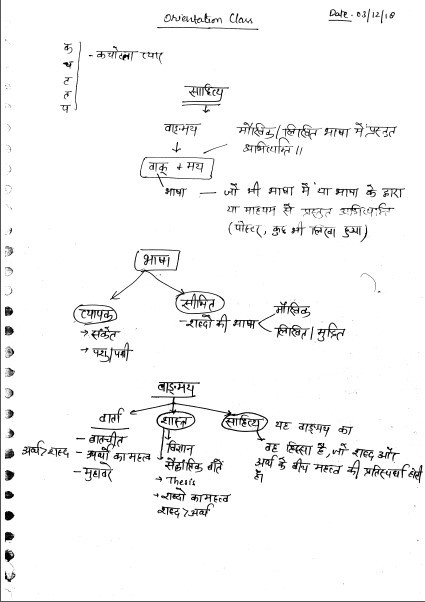 Orientation Class
Date - 03/12/18
क
च
ट
त
प
साहित्य
वाङ्मय
मौखिक/लिखित भाषा में प्रस्तुत
अभिव्यक्ति।।
वाक् + मय
भाषा — जो भी भाषा में या भाषा के द्वारा
या माध्यम से प्रस्तुत अभिव्यक्ति
(पोस्टर, कुछ भी लिखा हुआ)
भाषा
व्यापक
→ संकेत
→ पशु/पक्षी
सीमित
- शब्दों की भाषा
मौखिक
लिखित/मुद्रित
वाङ्मय
वार्ता
- बातचीत
- अर्थों का महत्व
अर्थ > शब्द
- मुहावरे
शास्त्र
विज्ञान
सैद्धांतिक बातें
→ Thesis
→ शब्दों का महत्व
शब्द > अर्थ
साहित्य
यह वाङ्मय का
वह हिस्सा है, जो शब्द और
अर्थ के बीच महत्व की प्रतिस्पर्धा होती
है।